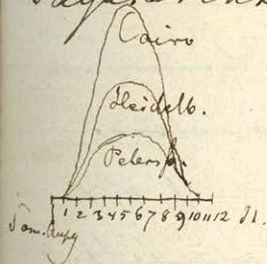 Cairo
Heidelb.
Petersb.
1 2 3 4 5 6 7 8 9 10 11 12 St.